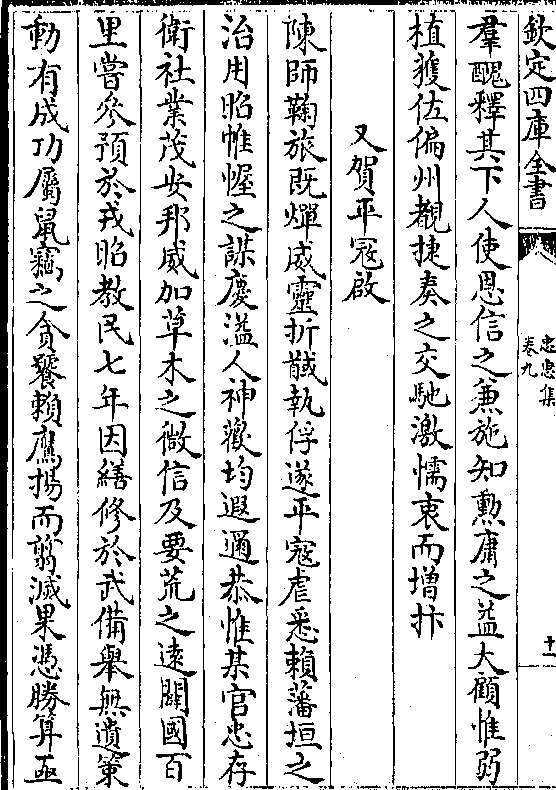 欽定四庫全書
忠惠集
卷九
十一
羣醜釋其下人使恩信之兼施知勲庸之益大顧惟弱
植獲佐偏州覩捷奏之交馳激懦衷而增抃
又賀平寇啟
陳師鞠旅既燀威靈折馘執俘遂平寇虐悉賴藩垣之
治用昭帷幄之謀慶溢人神歡均遐邇恭惟某官忠存
衛社業茂安邦威加草木之微信及要荒之遠闢國百
里嘗參預於戎昭教民七年因繕修於武備舉無遺策
動有成功屬鼠竊之貪饕賴鷹揚而翦滅果憑勝算亟